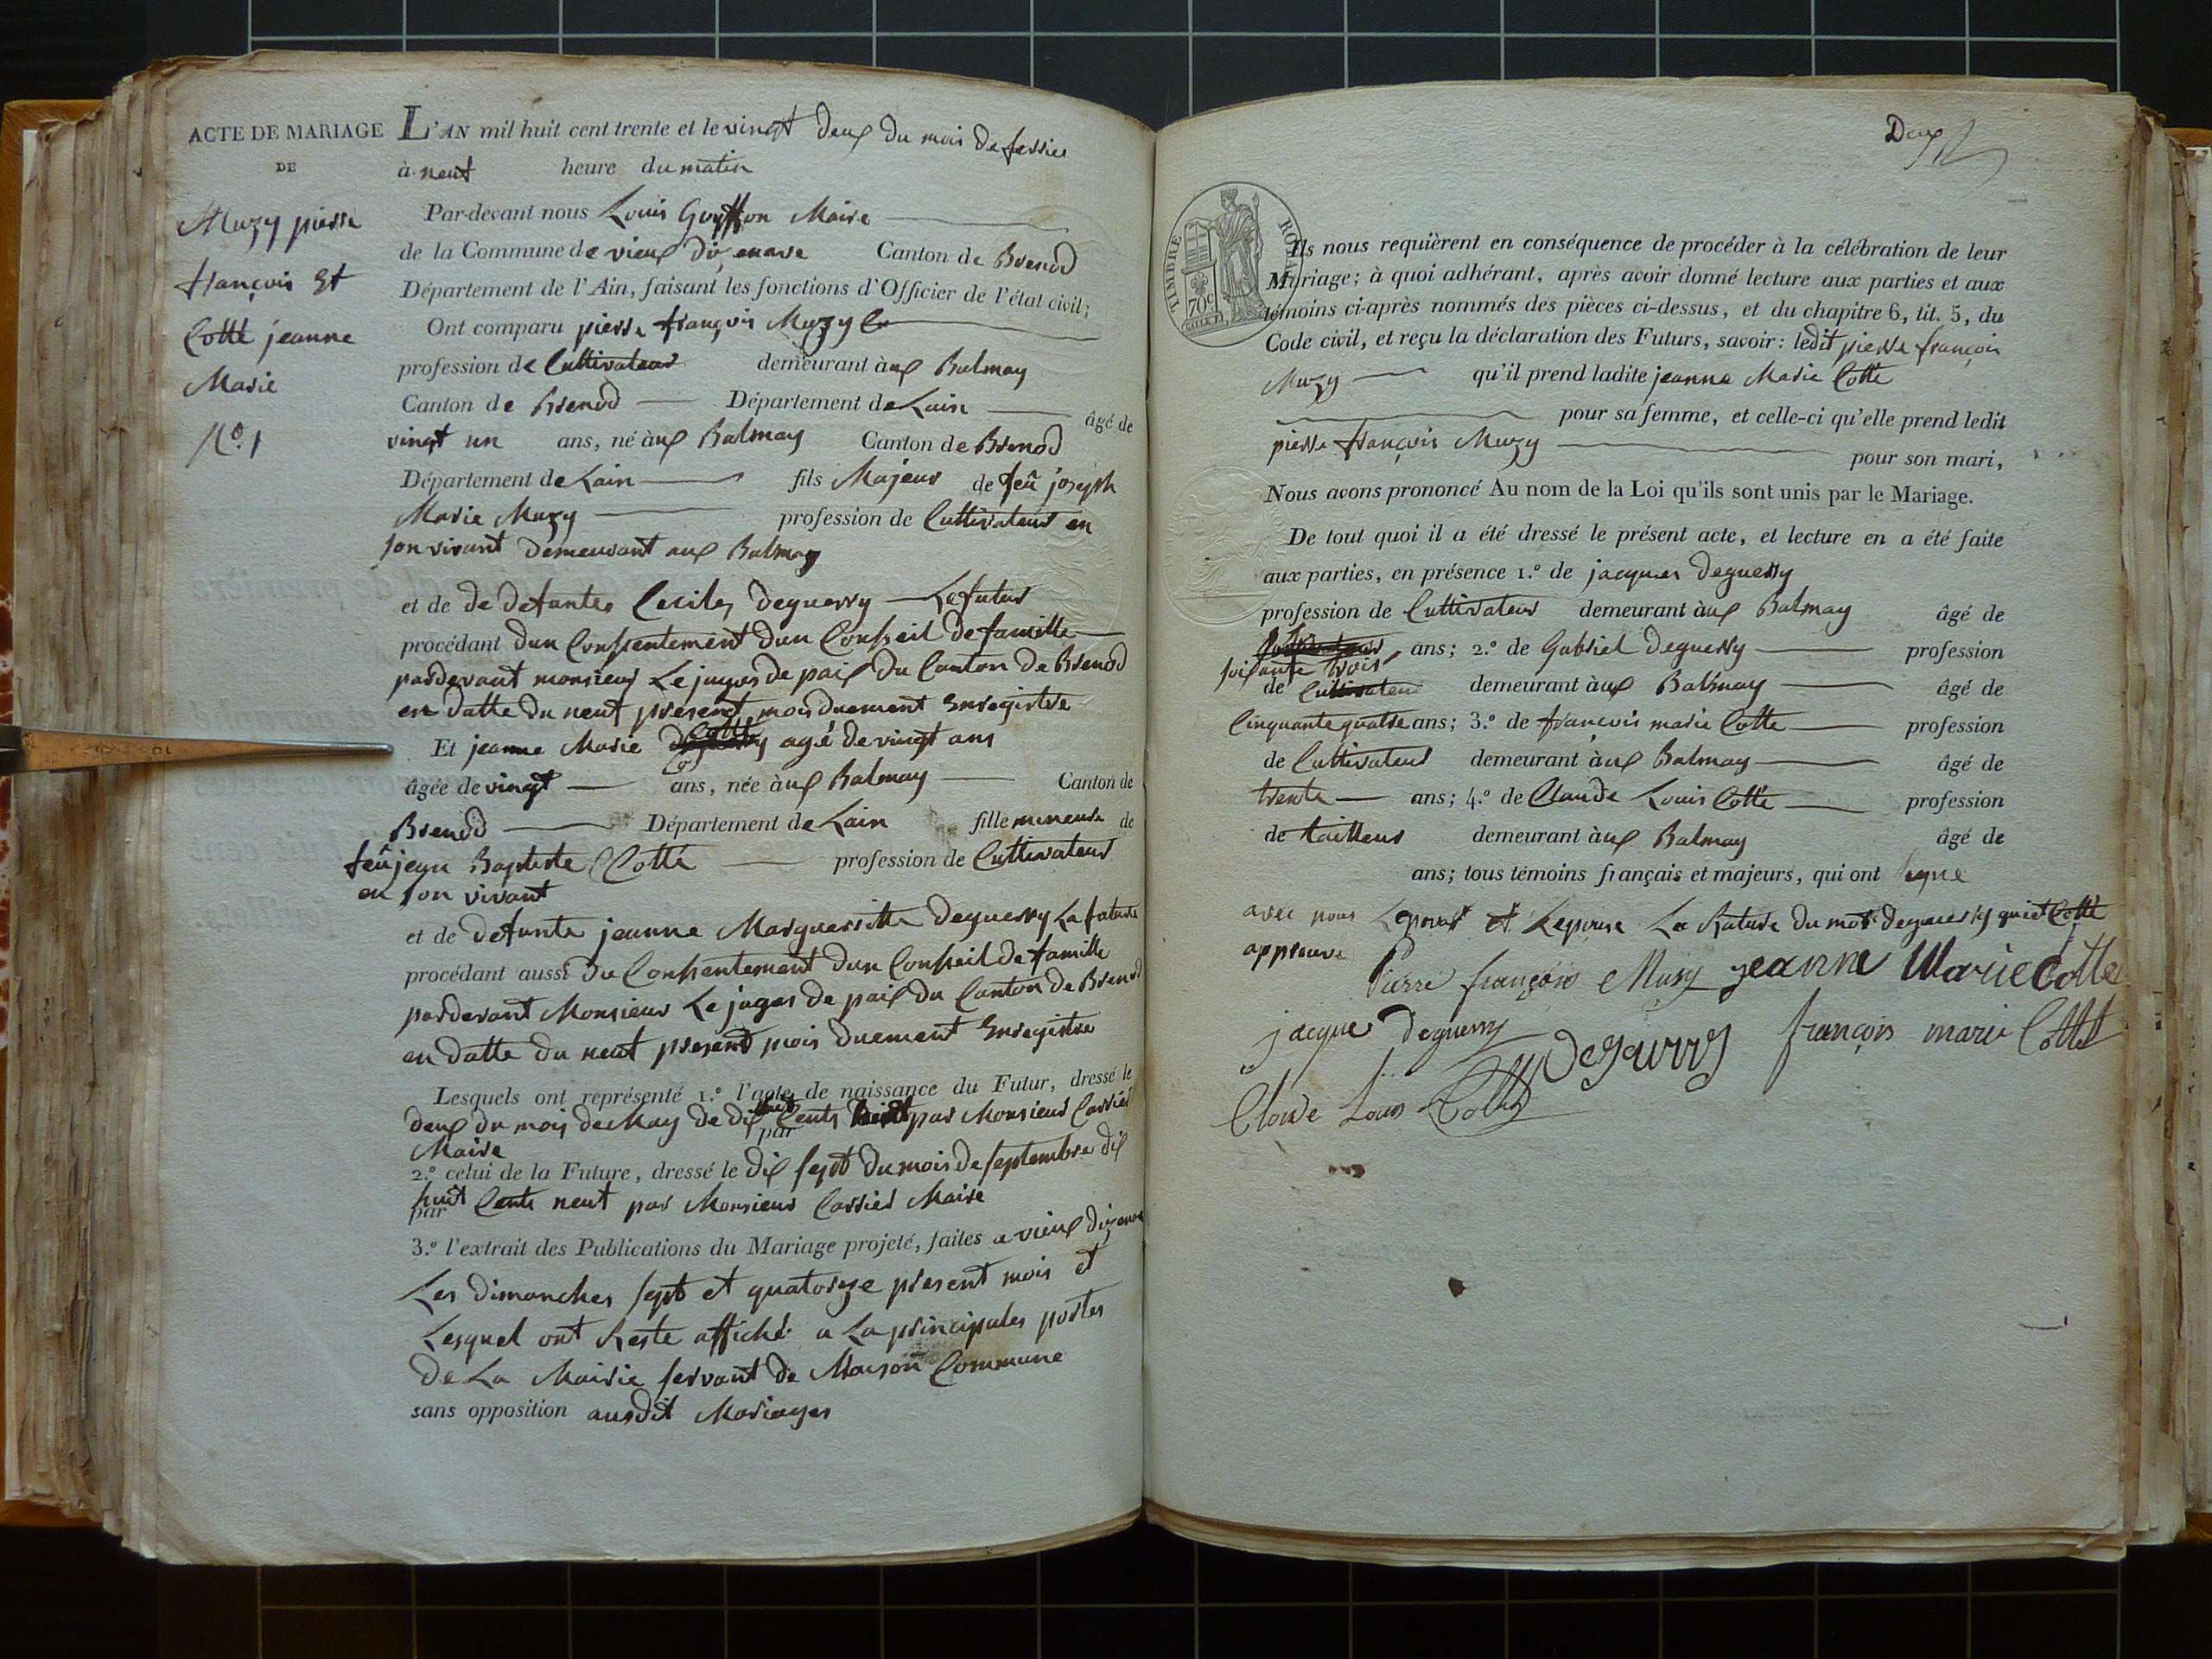 ACTE DE MARIAGE
DE
Muzy pierre
françois Et
Cotte jeanne
Marie
No. 1
L'AN mil huit cent trente et le vingt deux du mois de fevrier
à neuf heure du matin
Par-devant nous Louis Maire
de la Commune de vieux d'izenave Canton de Brenod
Département de l'Ain, faisant les fonctions d'Officier de l'état civil;
Ont comparu pierre françois Muzy
profession de Cultivateur demeurant àux Balmay
Canton de Brenod Département de Lain âgé de
vingt un ans, né àux Balmay Canton de Brenod
Département de Lain fils Majeur de feû joseph
Marie Muzy profession de Cultivateur en
son vivant demeurant aux Balmay
et de de defuntes Ceciles deguerry Le futur
procédant dun Consentement dun Conseil de famille
pardevant monsieur Le juges de paix du Canton de Brenod
en datte du neuf present mois duement Enregistre
Et jeanne Marie Cotte agé de vingt ans
âgée de vingt ans, née àux Balmay Canton de
Brenod Département de Lain fille mineure de
feû jean Baptiste Cotté profession de Cultivateur
en son vivant
et de defunte jeanne Margueritte deguerry La future
procédant aussi du Consentement dun Conseil de famille
pardevant Monsieur Le juges de paix du Canton de Brenod
en datte du neuf present mois duement Enregistre
Lesquels ont représenté 1.º l'acte de naissance du Futur, dressé le
deux du mois de May de dix huit Cents huit par Monsieur Carrier
par
Maire
2.º celui de la Future, dressé le dix sept du mois de septembre dix
huit Cents neuf par Monsieur Carrier Maire
par
3.º l'extrait des Publications du Mariage projeté, faites a vieux dizenave
Les dimanches sept et quatorze present mois et
Lesquel ont Reste affiché a La principales portes
de La Mairie servant de Maison Commune
sans opposition ausdit Mariages
Deux
TIMBRE ROYAL
70c
Ils nous requièrent en conséquence de procéder à la célébration de leur
Mariage; à quoi adhérant, après avoir donné lecture aux parties et aux
témoins ci-après nommés des pièces ci-dessus, et du chapitre 6, tit. 5, du
Code civil, et reçu la déclaration des Futurs, savoir: ledit pierre françois
Muzy qu'il prend ladite jeanne Marie Cotte
pour sa femme, et celle-ci qu'elle prend ledit
pierre françois Muzy pour son mari,
Nous avons prononcé Au nom de la Loi qu'ils sont unis par le Mariage.
De tout quoi il a été dressé le présent acte, et lecture en a été faite
aux parties, en présence 1.º de jacques deguerry
profession de Cultivateur demeurant àux Balmay âgé de
ans; 2.º de Gabriel deguerry profession
soixante trois
de Cultivateur demeurant àux Balmay âgé de
Cinquante quatre ans; 3.º de françois marie Cotte profession
de Cultivateur demeurant àux Balmay âgé de
trente ans; 4.º de Claude Louis Cotté profession
de tailleur demeurant àux Balmay âgé de
ans; tous témoins français et majeurs, qui ont signe
avec nous Lepoux et Lepouse La Rature du mot deguerry qui et Cotté
approuve
Pierre françois Muzy jeanne Marie Cotte
jacque deguerry deguerry françois marie Cottet
Cloude Louis Cottet